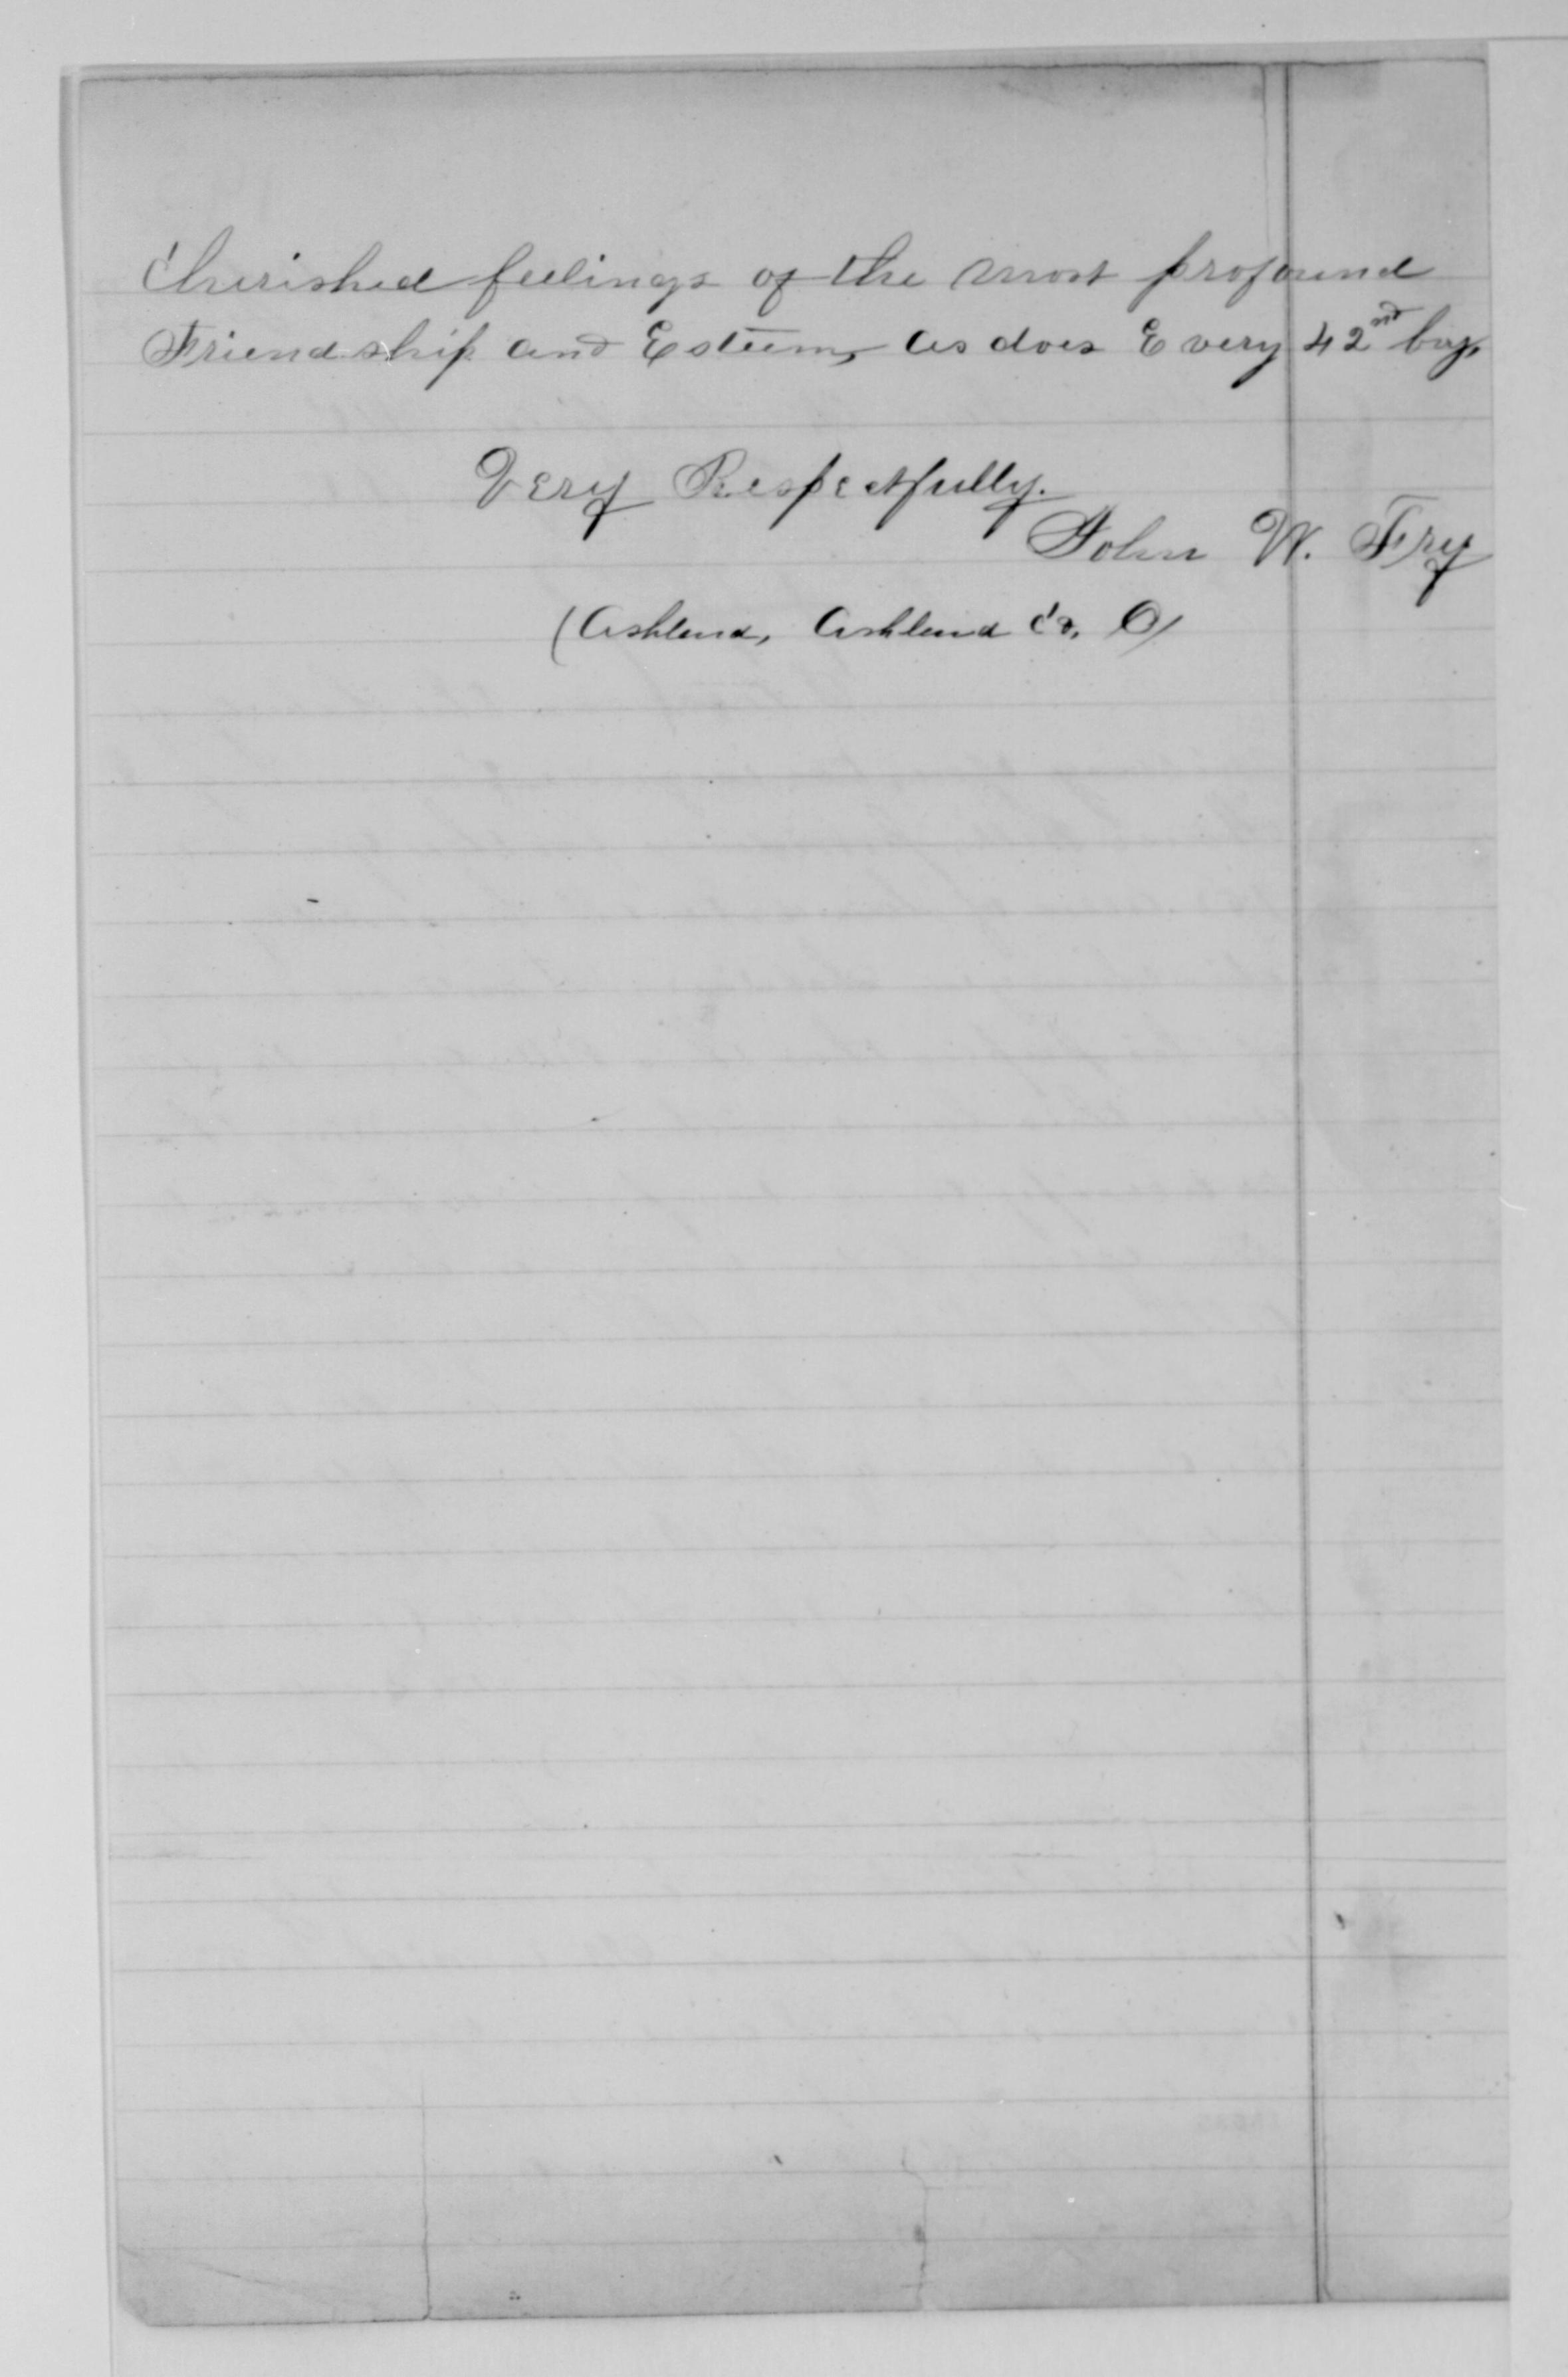 Cherished feelings of the most profound
Friendship and Esteem, as does Every 42nd boy,
Very Respectfully.
John W. Fry
(Ashland, Ashland Co, O)